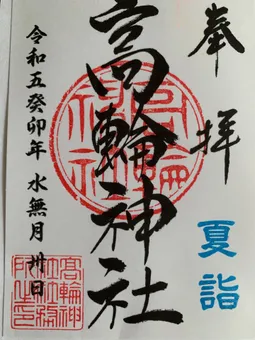 奉拝
夏詣
高輪神社
令和五癸卯年 水無月 卅日
高輪神社
高輪神社社務所之印